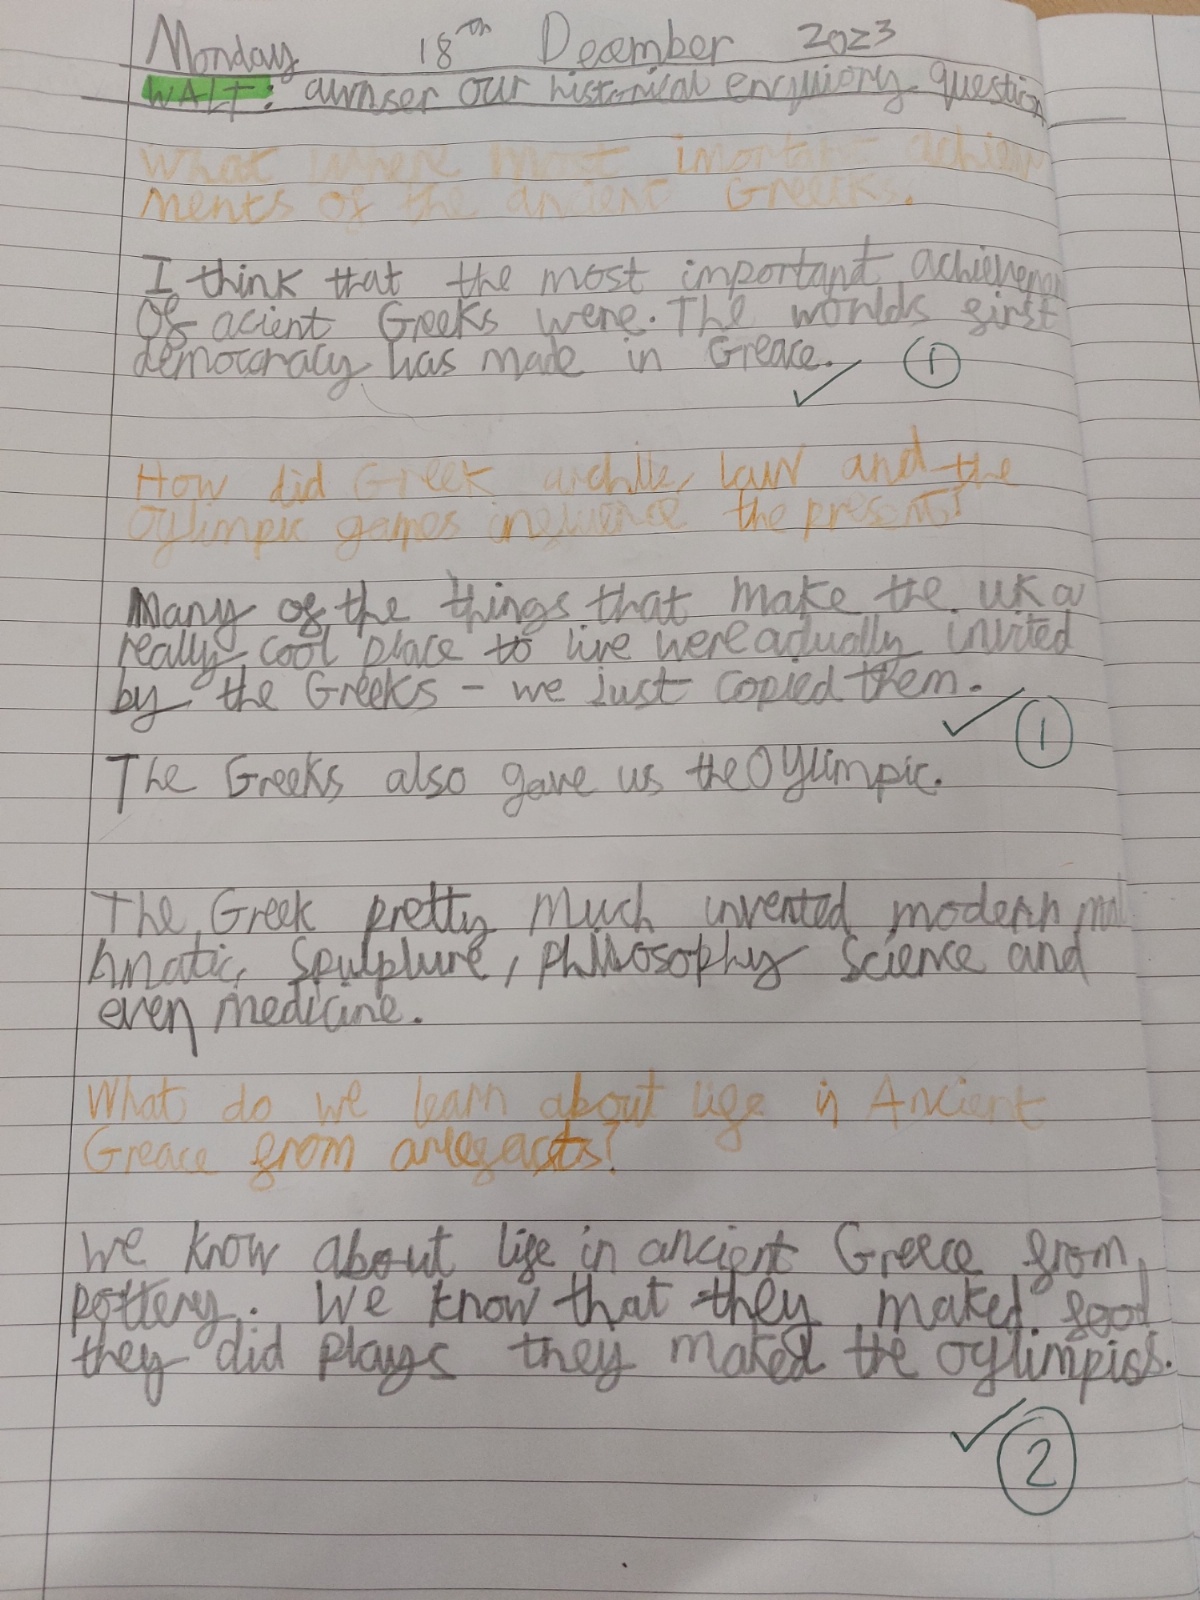 Monday 18th December 2023
WALT: awnser our historical enquiory question
What where most imortant achiev
ments of the ancient Greeks.
I think that the most important achievemen
Of acient Greeks were. The worlds first
democracy was made in Greace. ✓ 1
How did Greek law and the
Oylimpic games infuence the present?
Many of the things that make the UK a
really cool place to live were adually invited
by the Greeks - we just copied them. ✓ 1
The Greeks also gave us the Oylimpic.
The Greek pretty much invented modern
hmatic, Spulplure, philosophy Science and
even medicine.
What do we learn about life in Ancient
Greace from
we know about life in ancient Greece from
pottery. We know that they maked food
they did plays they maked the oylimpiss.
✓ 2